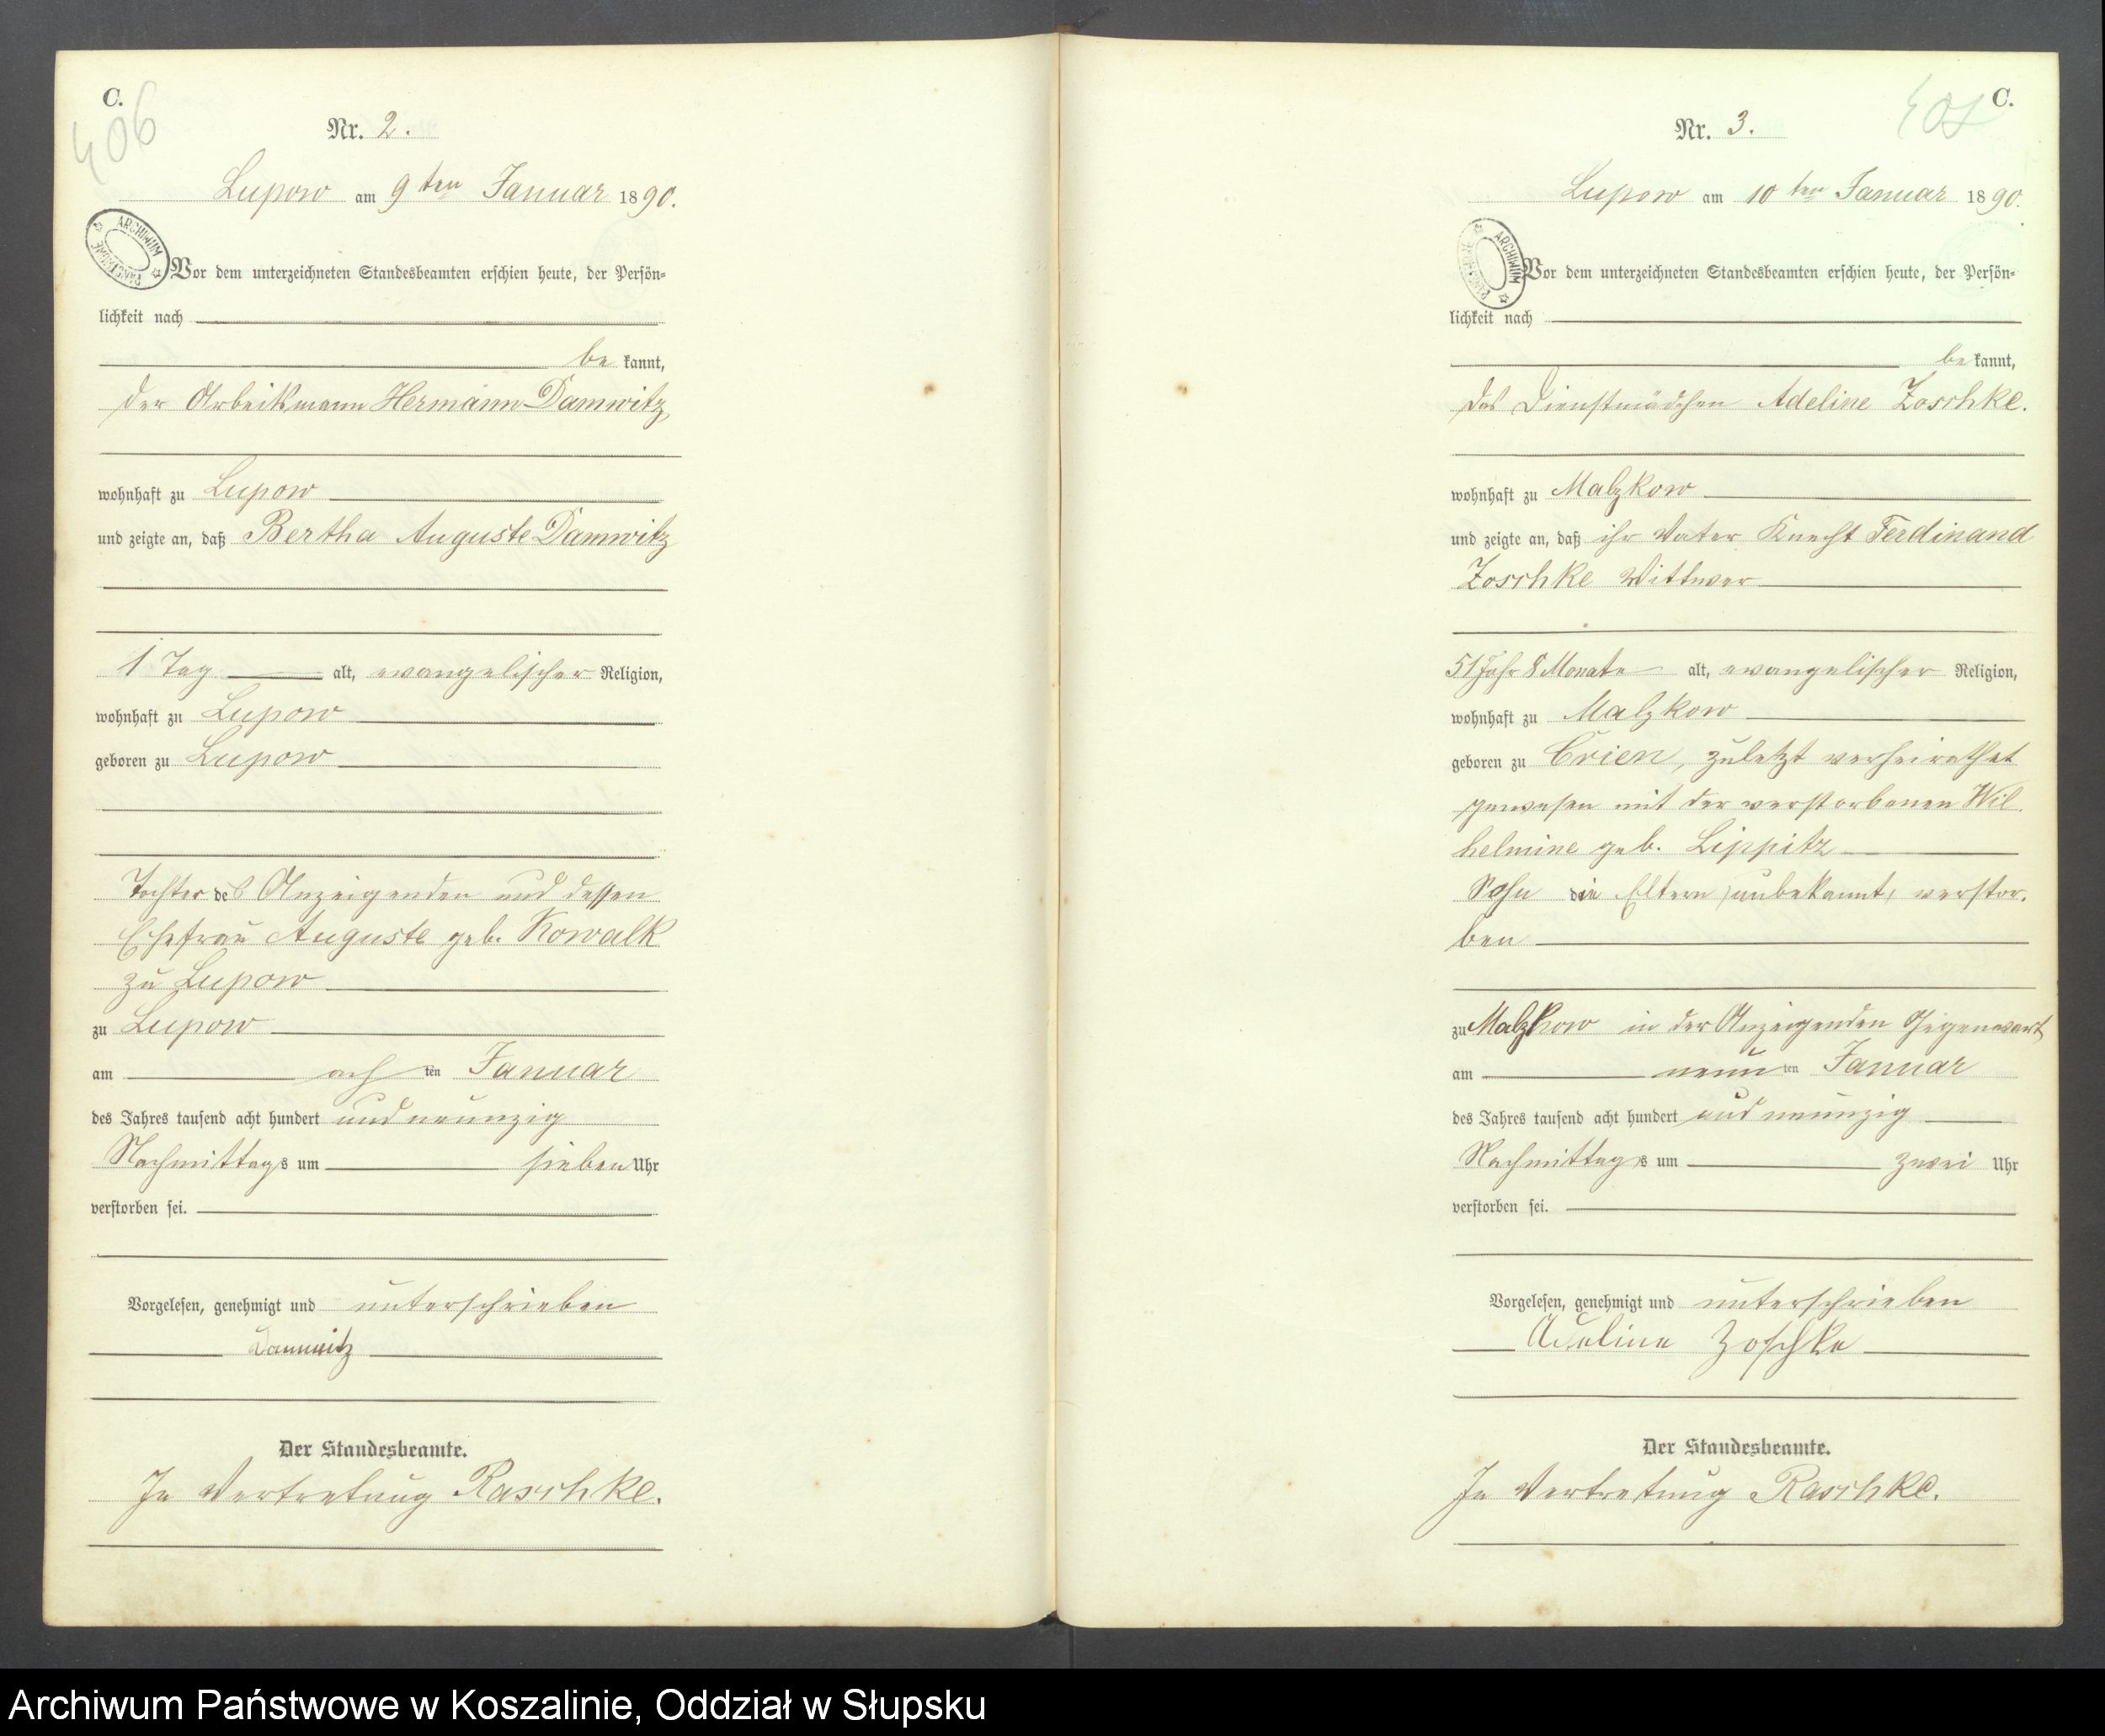 C.
406
Nr. 2.
Lupow am 9ten Januar 1890.
ARCHIWUM PAŃSTWOWE
Vor dem unterzeichneten Standesbeamten erschien heute, der Persön=
lichkeit nach
be kannt,
der Arbeitsmann Hermann Damwitz,
wohnhaft zu Lupow
und zeigte an, daß Bertha Auguste Damwitz
1 Tag alt, evangelischer Religion,
wohnhaft zu Lupow
geboren zu Lupow
Tochter des Anzeigenden und dessen
Ehefrau Auguste geb. Kowalk
zu Lupow
zu Lupow
am ach ten Januar
des Jahres tausend acht hundert und neunzig
Nachmittags um sieben Uhr
verstorben sei.
Vorgelesen, genehmigt und unterschrieben
Damwitz
Der Standesbeamte.
In Vertretung Raschke.
C.
Nr. 3.
Lupow am 10ten Januar 1890.
ARCHIWUM PAŃSTWOWE
Vor dem unterzeichneten Standesbeamten erschien heute, der Persön=
lichkeit nach
be kannt,
das Dienstmädchen Adeline Zoschke.
wohnhaft zu Malzkow
und zeigte an, daß ihr Vater Knecht Ferdinand
Zoschke Wittwer
51 Jahr 8 Monate alt, evangelischer Religion,
wohnhaft zu Malzkow
geboren zu Crien, zuletzt verheirathet
gewesen mit der verstorbenen Wil.
helmine geb. Lippitz
Sohn die Eltern unbekannt, verstor.
ben
zu Malzkow in der Anzeigenden Gegenwart
am neun ten Januar
des Jahres tausend acht hundert und neunzig
Nachmittags um zwei Uhr
verstorben sei.
Vorgelesen, genehmigt und unterschrieben
Adeline Zoschke
Der Standesbeamte.
In Vertretung Raschke.
Archiwum Państwowe w Koszalinie, Oddział w Słupsku